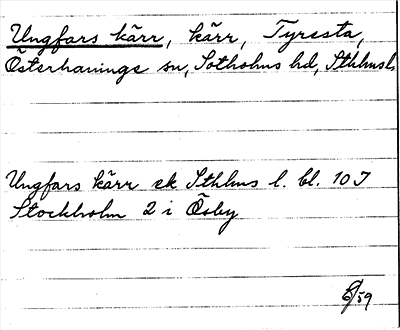 Ungfars kärr, kärr, Tyresta,
Österhaninge sn, Sotholms hd, Sthlmsl.
Ungfars kärr ek Sthlms l. bl. 10 J
Stockholm 2 i Ösby
/59